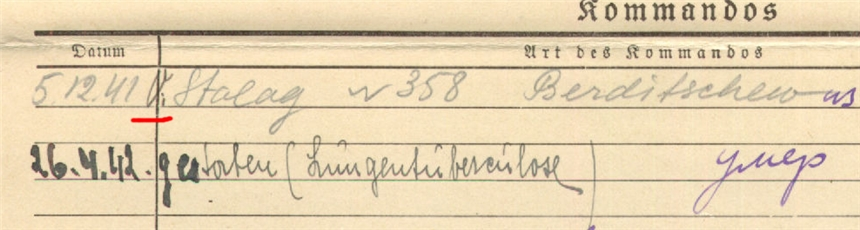 Kommandos
Datum Art des Kommandos
5.12.41 V. Stalag 358 Berditschew из
26.4.42. gestorben (Lungentuberculose) умер